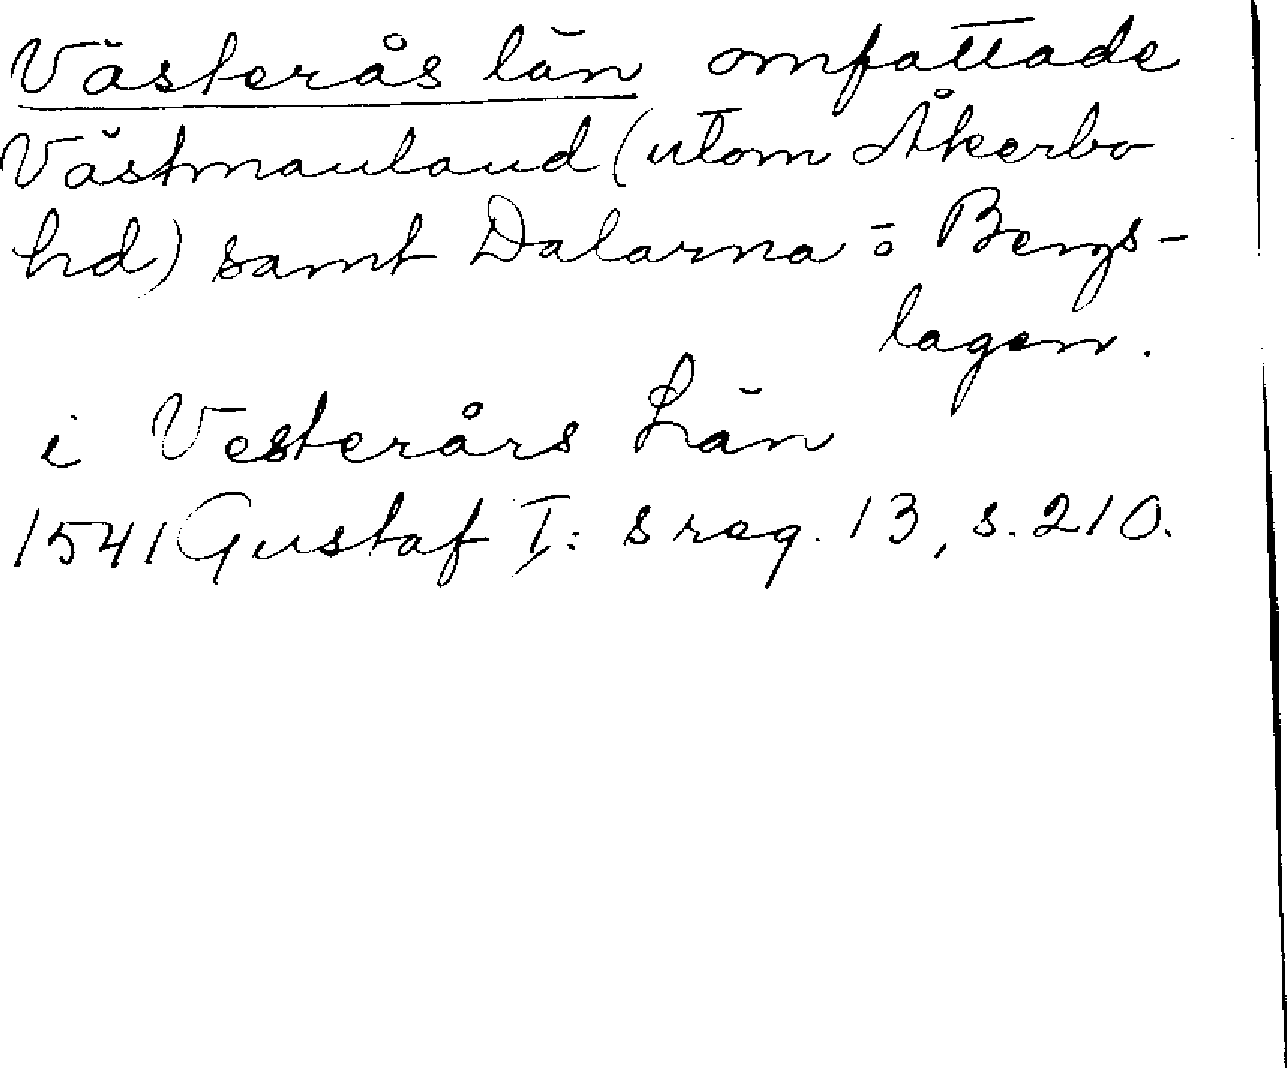 Västerås län omfattade
Västmanland (utom Åkerbo
hd) samt Dalarna o Bergs-
lagen.
i Vesterårs Län
1541 Gustaf I: s reg. 13, s. 210.